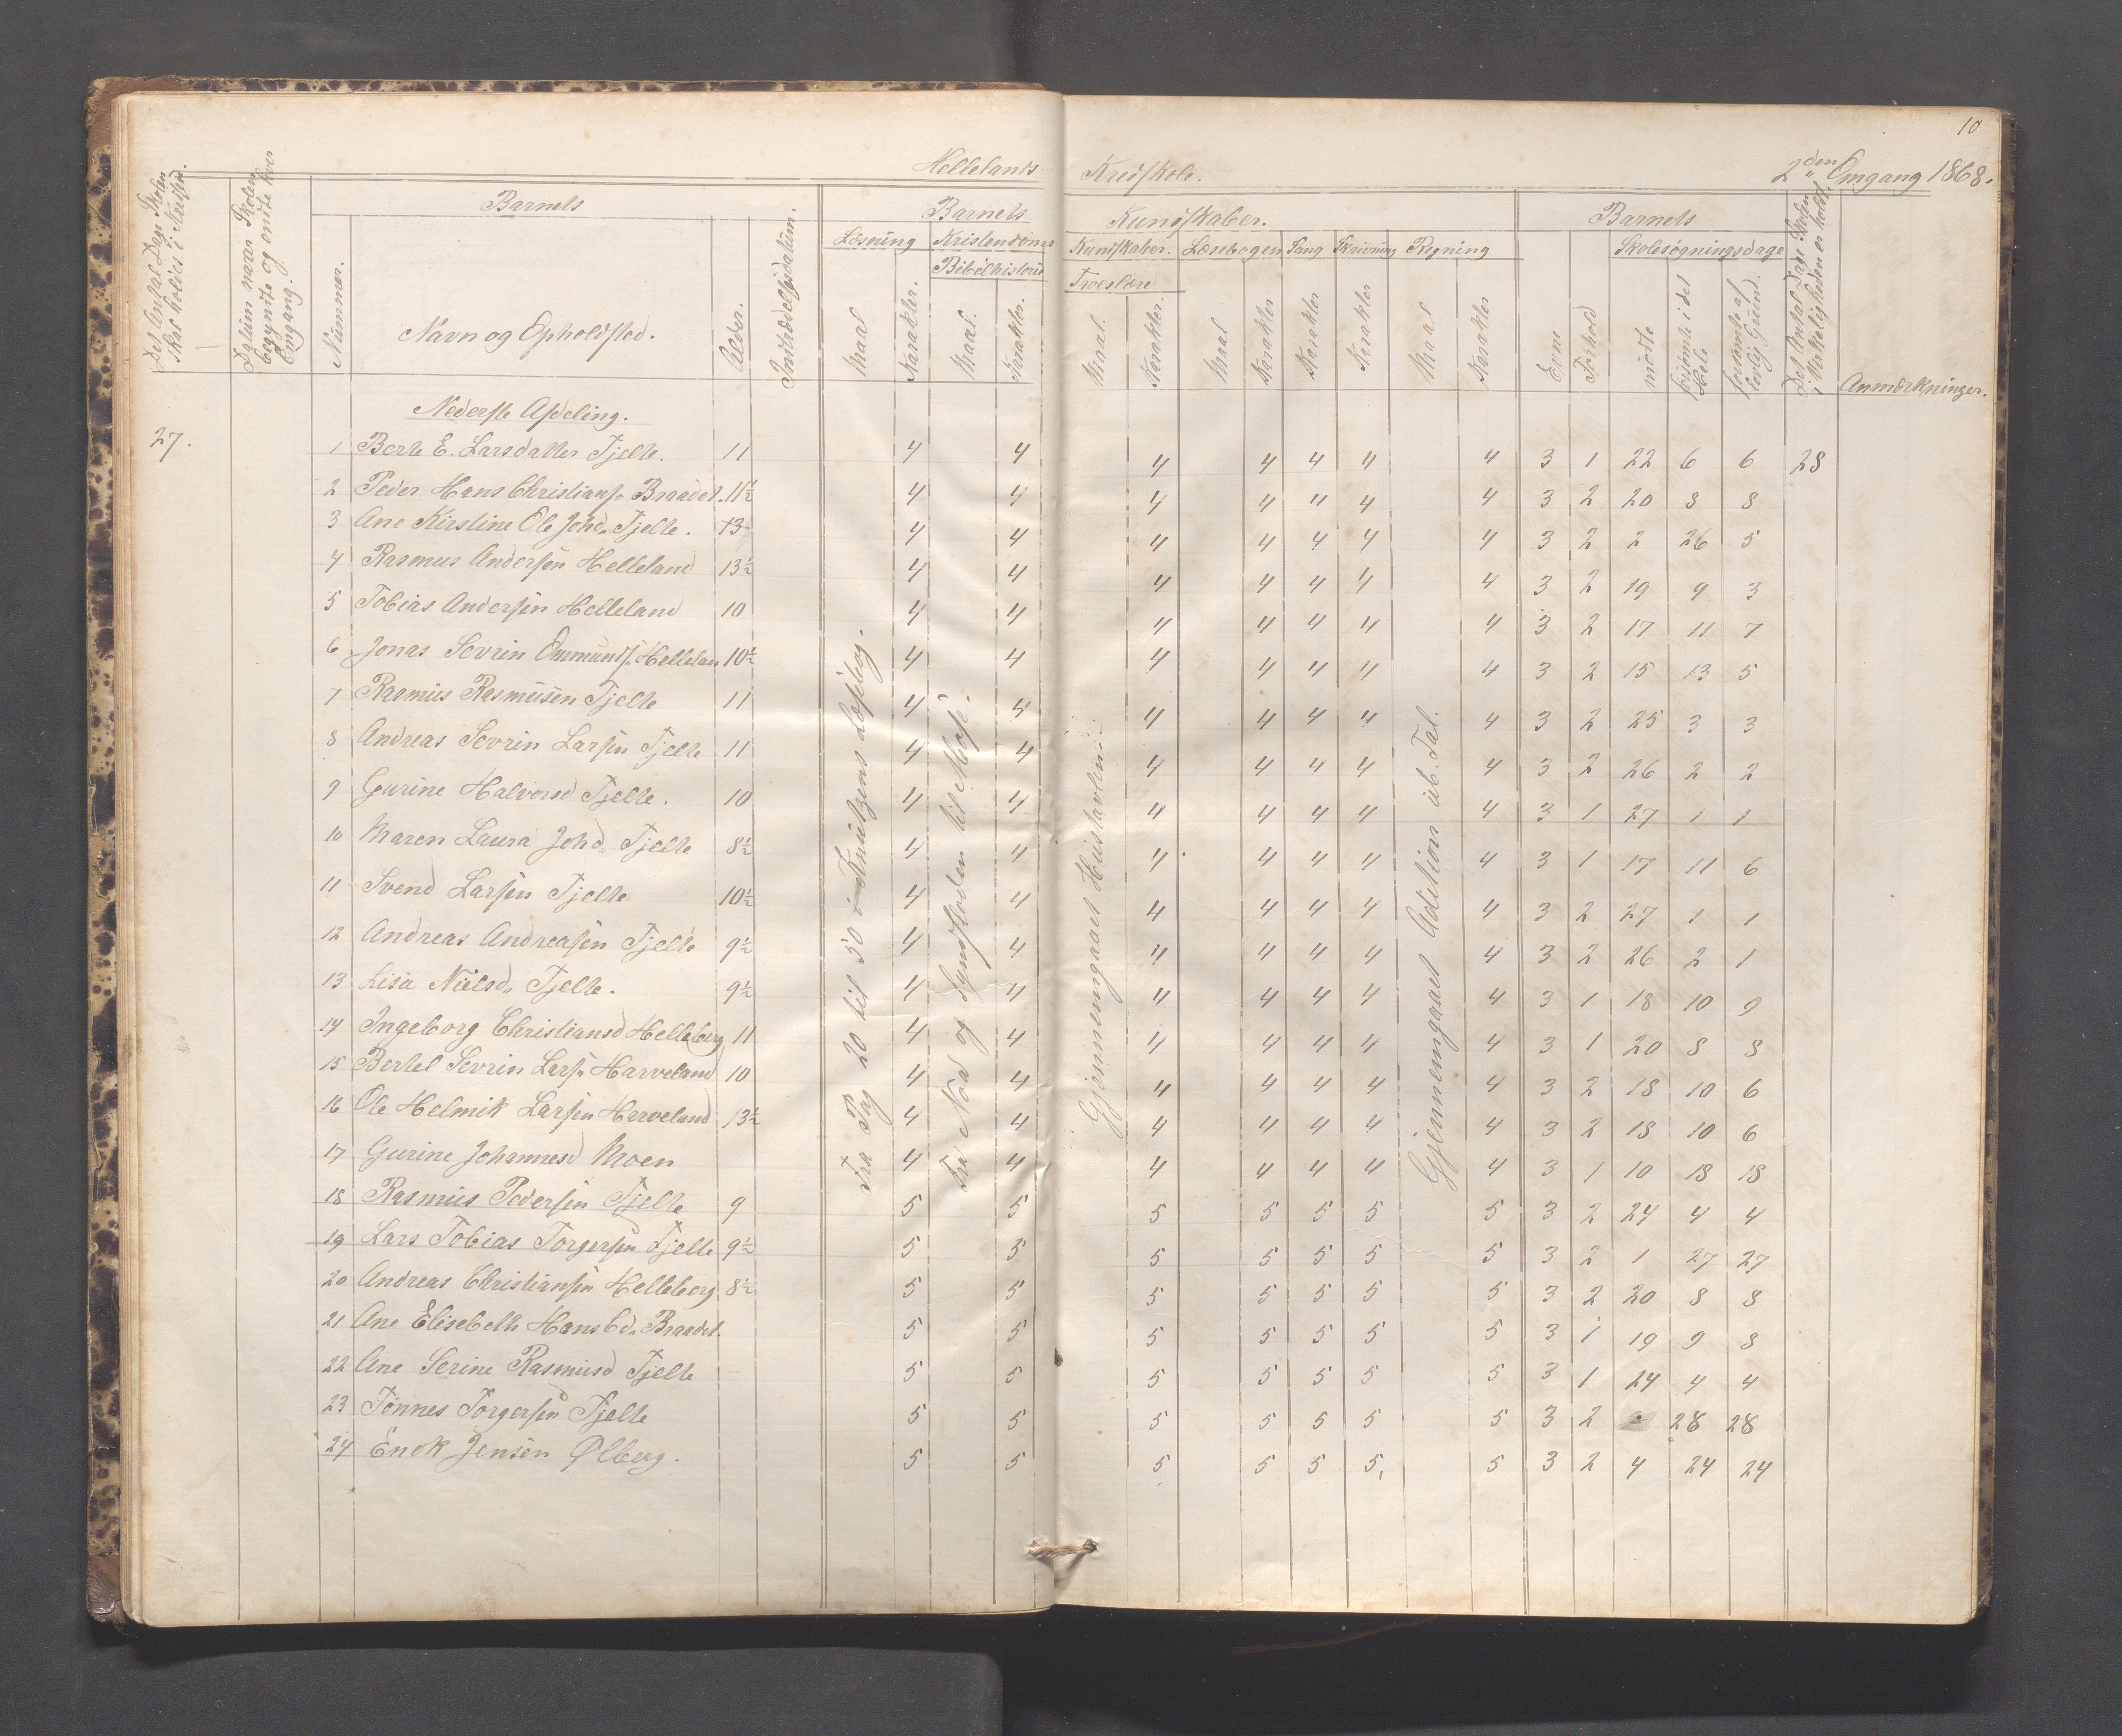 10
Hellelands Kredsskole. 2den Omgang 1868.
Det Antal Dage Skolen skal holdes i Kredsen.
Datum naar Skolen begyndte og endte hver Omgang.
Barnets
Nummer.
Navn og Opholdssted.
Alder.
Indtrædelsesdatum.
Barnets Kundskaber.
Læsning
Maal
Karakter.
Kristendoms Kundskaber.
Bibelhistorie
Maal.
Karakter.
Troeslære
Maal.
Karakter.
Læsebogen
Maal
Karakter
Sang
Karakter
Skrivning
Karakter
Regning
Maal
Karakter
Barnets
Evne
Forhold
Skolesøgningsdage
mødte
forsømte i det Hele
forsømte af lovlig Grund.
Det Antal Dage Skolen i Virkeligheden er holdt.
Anmærkninger.
Nederste Afdeling.
27. 1 Berte E. Larsdatter Tjelte. 11 4 4 4 4 4 4 4 3 1 22 6 6 28
2 Peder Hans Christians. Braadet. 11½ 4 4 4 4 4 4 4 3 2 20 8 8
3 Ane Kirstine Ole Johd. Tjelte. 13 4 4 4 4 4 4 4 3 2 2 26 5
4 Rasmus Andersen Helleland 13½ 4 4 4 4 4 4 4 3 2 19 9 3
5 Tobias Andersen Helleland 10 4 4 4 4 4 4 4 3 2 17 11 7
6 Jonas Sevrin Ommunds. Hellelan 10½ 4 4 4 4 4 4 4 3 2 15 13 5
7 Rasmus Rasmusen Tjelte 11 4 4 4 4 4 4 4 3 2 25 3 3
8 Andreas Sevrin Larsen Tjelte 11 4 4 4 4 4 4 4 3 2 26 2 2
9 Gurine Halvorsd Tjelte. 10 4 4 4 4 4 4 4 3 1 27 1 1
10 Maren Laura Johd. Tjelte 8½ 4 4 4 4 4 4 4 3 1 17 11 6
11 Svend Larsen Tjelte 10½ 4 4 4 4 4 4 4 3 2 27 1 1
12 Andreas Andreasen Tjelte 9½ 4 4 4 4 4 4 4 3 2 26 2 1
13 Lisa Nielsd. Tjelte. 9½ 4 4 4 4 4 4 4 3 1 18 10 9
14 Ingeborg Christiansd Helleberg 11 4 4 4 4 4 4 4 3 1 20 8 8
15 Bertel Sevrin Lars. Harveland 10 4 4 4 4 4 4 4 3 2 18 10 6
16 Ole Helmik Larsen Harveland 13½ 4 4 4 4 4 4 4 3 2 18 10 6
17 Gurine Johannesd Moen 4 4 4 4 4 4 4 3 1 10 18 18
18 Rasmus Pedersen Tjelte 9 5 5 5 5 5 5 5 3 2 24 4 4
19 Lars Tobias Torgersen Tjelte 9½ 5 5 5 5 5 5 5 3 2 1 27 27
20 Andreas Christiansen Helleberg 8½ 5 5 5 5 5 5 5 3 2 20 8 8
21 Ane Elisebeth Hans Cd. Braadet. 5 5 5 5 5 5 5 3 1 19 9 8
22 Ane Serine Rasmusd Tjelte 5 5 5 5 5 5 5 3 1 24 4 4
23 Tönnes Torgersen Tjelte 5 5 5 5 5 5 5 3 2 28 28
24 Enok Jensen Ølberg. 5 5 5 5 5 5 5 3 2 4 24 24
Fra Pag 20 til 50 i Knudtzens Læsebog.
Fra Noa og Syndfloden til Mose.
Gjennemgaaet Hustavlen.
Gjennemgaaet Adition ub. Tal.